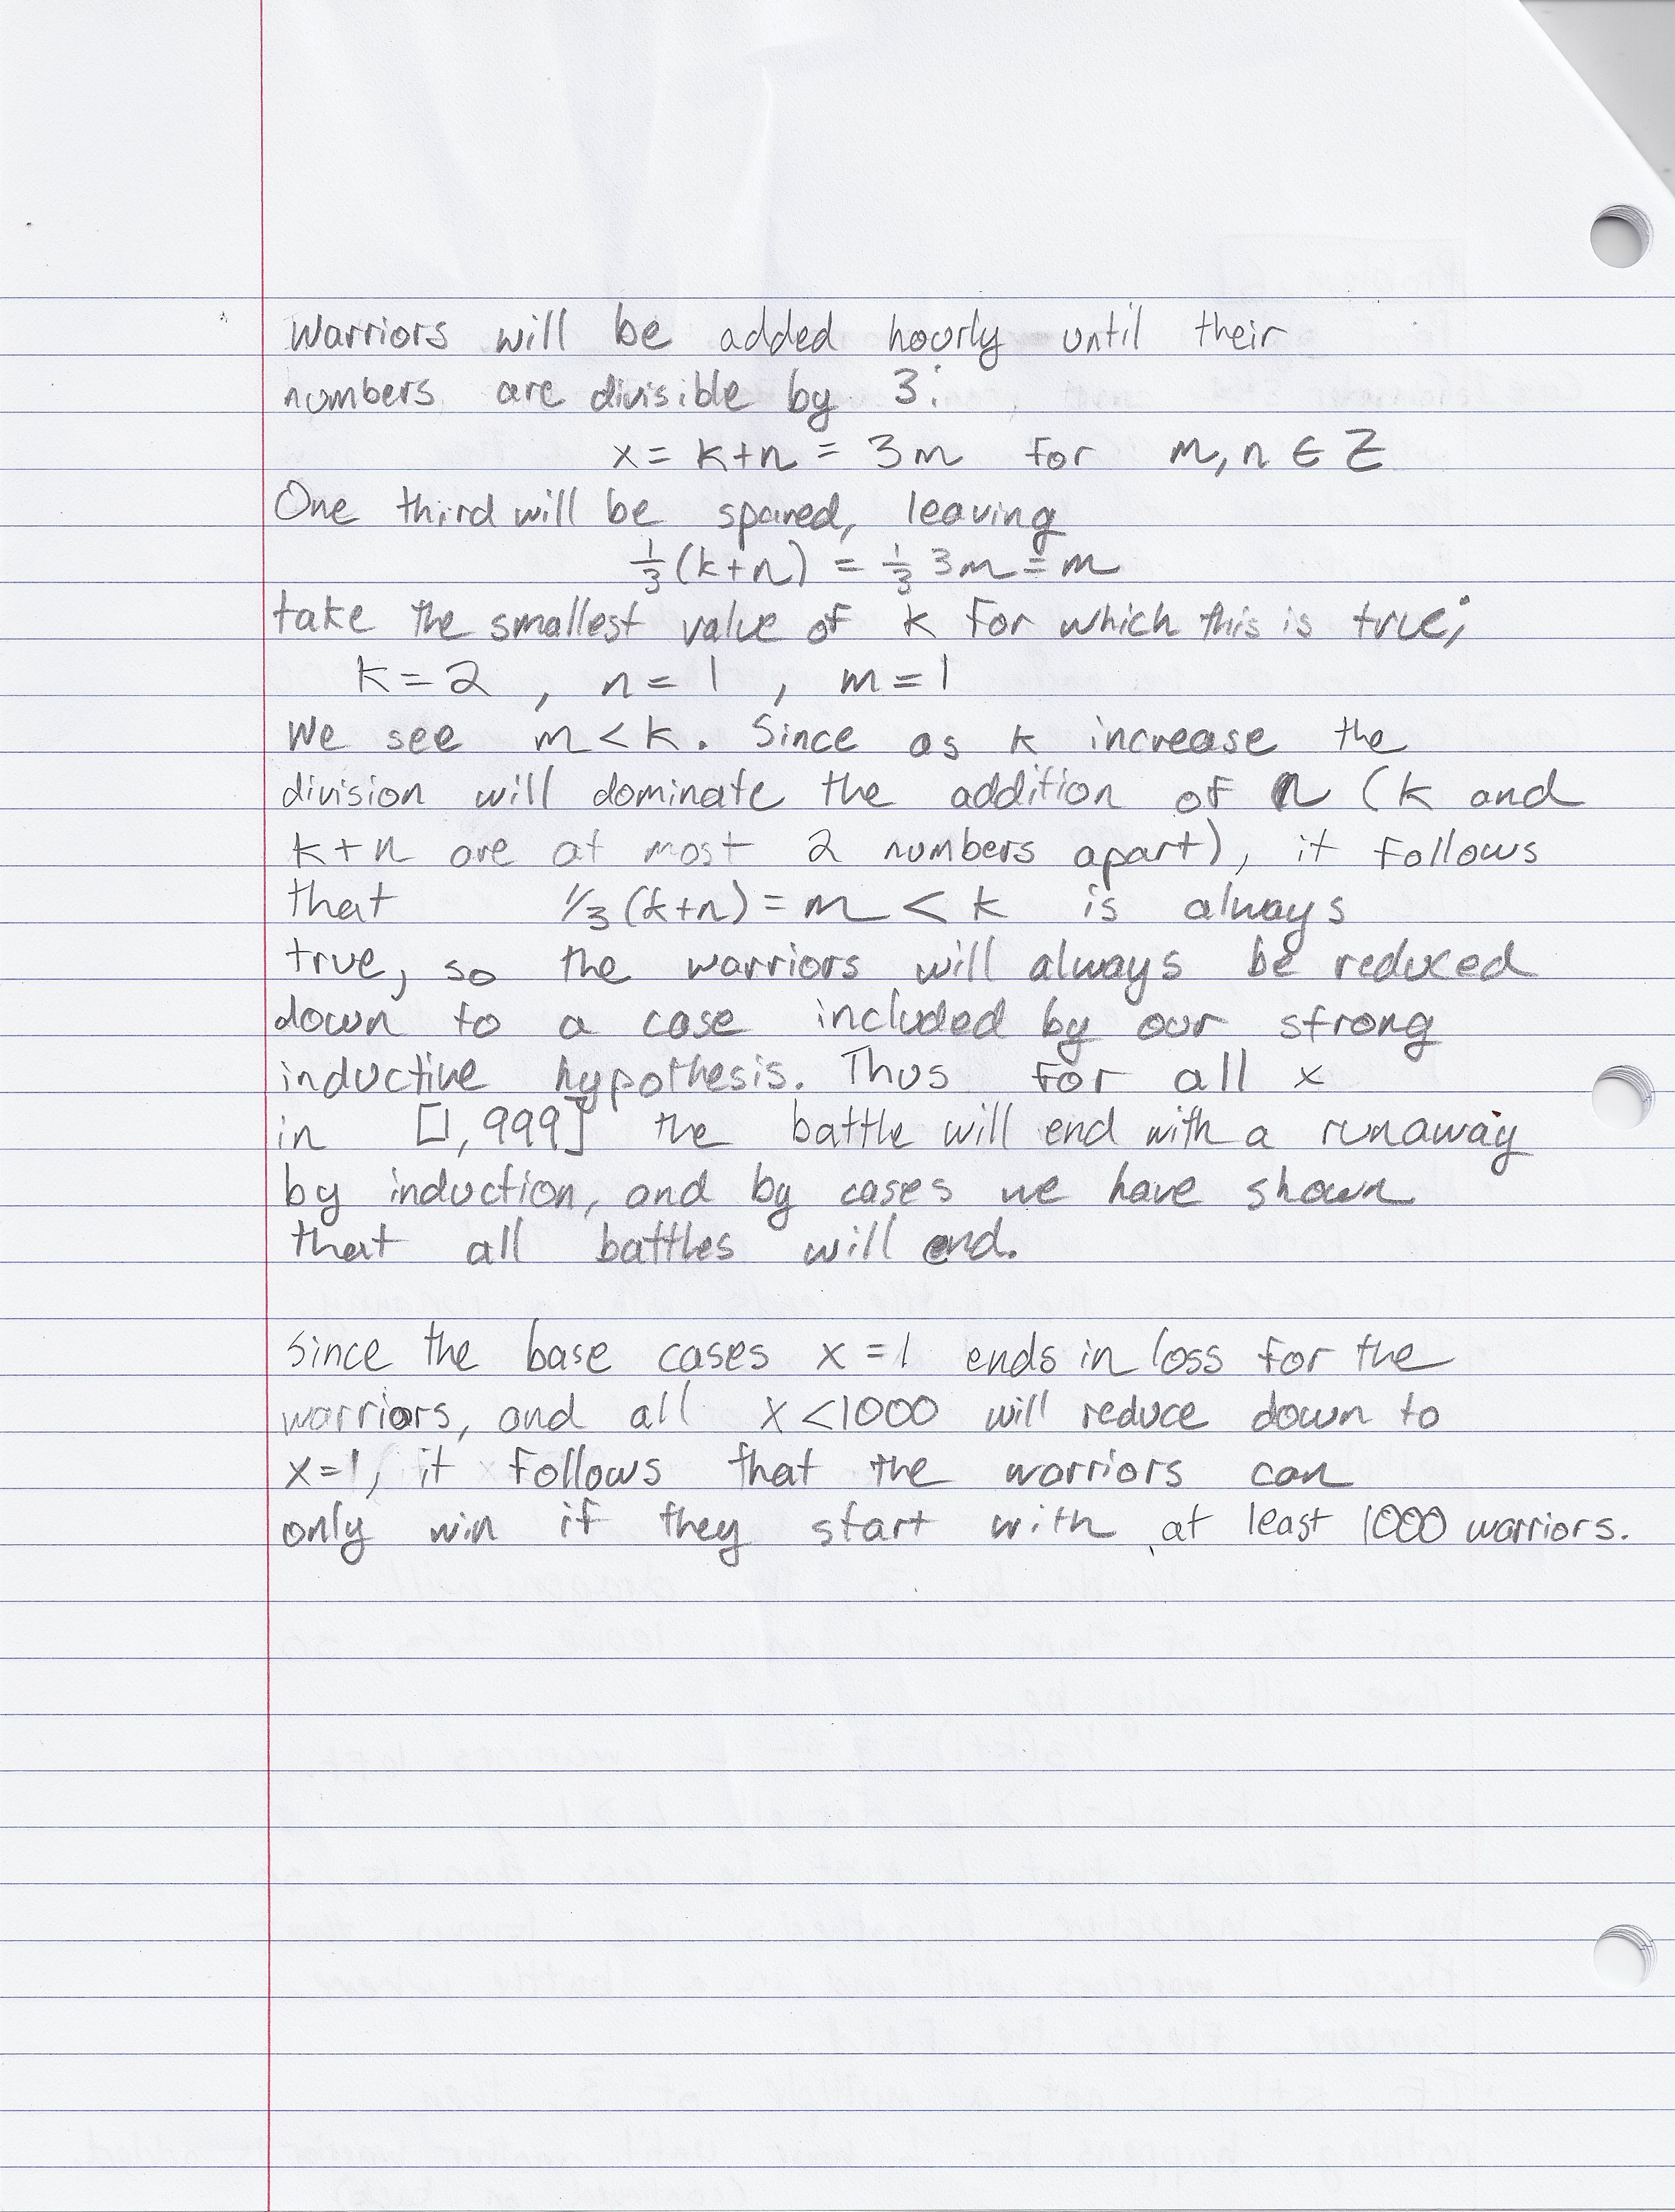 Warriors will be added hourly until their
numbers are divisible by 3:
x = k+n = 3m for m, n ∈ Z
One third will be spared, leaving
1/3 (k+n) = 1/3 3m = m
take the smallest value of k for which this is true;
k=2 , n=1 , m=1
We see m<k. Since as k increase the
division will dominate the addition of n (k and
k+n are at most 2 numbers apart), it follows
that 1/3 (k+n) = m < k is always
true, so the warriors will always be reduced
down to a case included by our strong
inductive hypothesis. Thus for all x
in [1, 999] the battle will end with a runaway
by induction, and by cases we have shown
that all battles will end.
Since the base cases x=1 ends in loss for the
warriors, and all x<1000 will reduce down to
x=1, it follows that the warriors can
only win if they start with at least 1000 warriors.